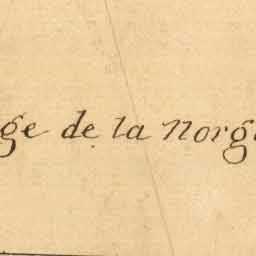 ge de la Norg